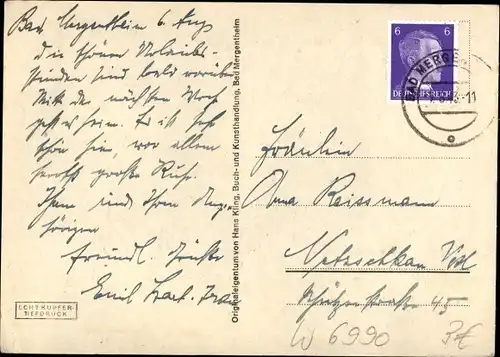 Bad Mergentheim 6. Aug
die schönen Urlaubs-
stunden sind bald vorüber
Mitte der nächsten Woche
geht es heim. Es ist sehr
schön hier, vor allem
herrscht große Ruhe.
Ihnen und Ihren Ange-
hörigen
freundl. Grüße
Emil
ECHT KUPFER-
TIEFDRUCK
Originaleigentum von Hans Kling, Buch- und Kunsthandlung, Bad Mergentheim
6 6
DEUTSCHES REICH
BAD MERGE
-11
Fräulein
Anna Reissmann
Netzschkau Vgtl
Schützenstraße 45
W 6990
3€